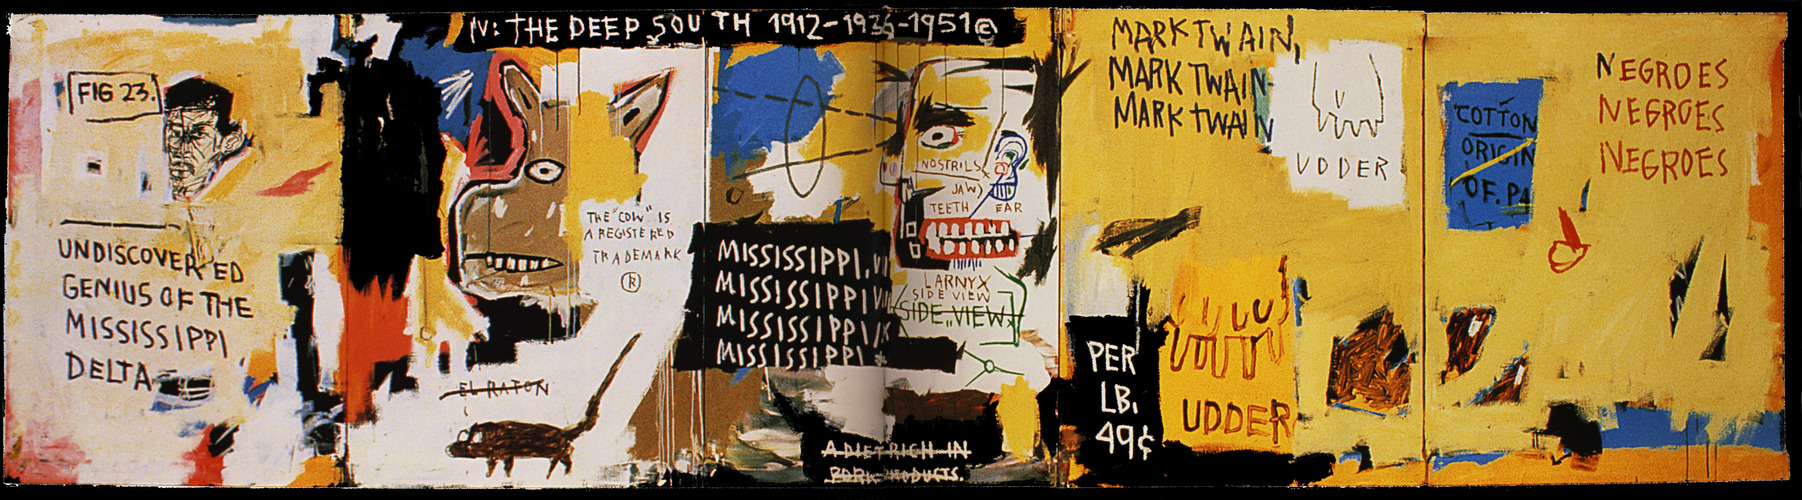 IV: THE DEEP SOUTH 1912-1936-1951©
FIG 23.
UNDISCOVERED
GENIUS OF THE
MISSISSIPPI
DELTA
THE "COW" IS
A REGISTERED
TRADEMARK
®
EL RATON
NOSTRILS
JAW)
TEETH EAR
LARNYX
SIDE VIEW
SIDE VIEW
MISSISSIPPI
MISSISSIPPI
MISSISSIPPI
MISSISSIPPI *
A DIET RICH IN
PORK PRODUCTS.
MARK TWAIN,
MARK TWAIN-
MARK TWAIN
UDDER
PER
LB.
49¢
UDDER
COTTON
ORIGIN
OF. PA
NEGROES
NEGROES
NEGROES